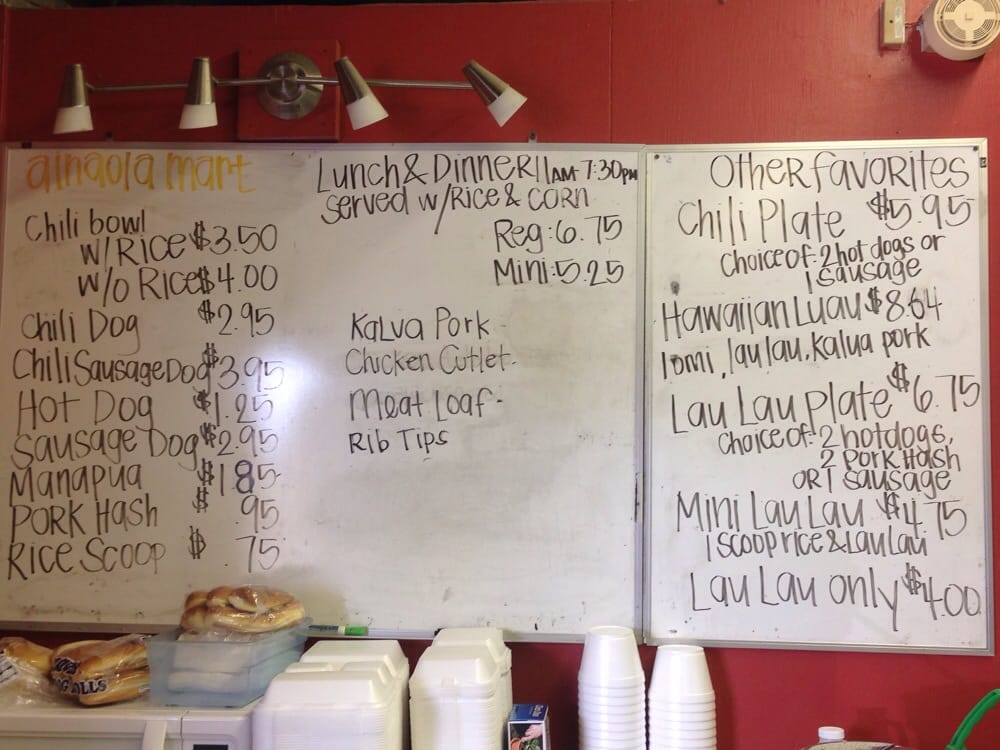 ainaola mart
Chili bowl
w/Rice $3.50
w/o Rice $4.00
Chili Dog $2.95
Chili Sausage Dog $3.95
Hot Dog $1.25
Sausage Dog $2.95
Manapua $1.85
Pork Hash $ .95
Rice Scoop $ 75
Lunch & Dinner 11AM-7:30PM
served w/Rice & corn
Reg: 6.75
Mini: 5.25
Kalua Pork -
Chicken Cutlet -
Meat Loaf -
Rib Tips
Other favorites
Chili Plate $5.95
Choice of: 2 hot dogs or
1 sausage
Hawaiian Luau $8.64
lomi, lau lau, kalua pork
Lau Lau plate $6.75
Choice of: 2 hotdogs,
2 Pork Hash
OR 1 sausage
Mini Lau Lau $4.75
1 scoop rice & Lau Lau
Lau Lau only $4.00